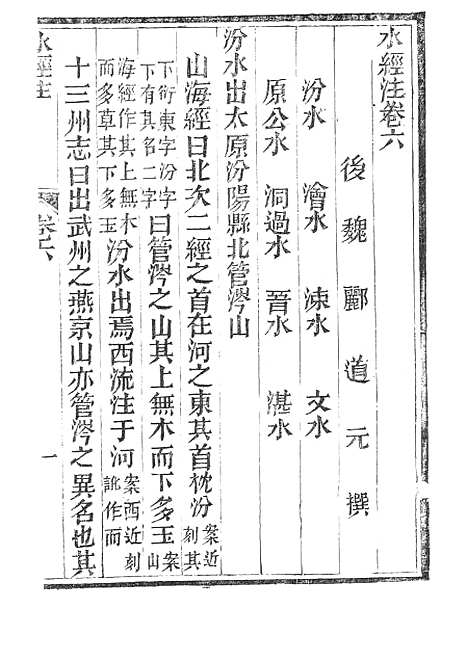 水經注卷六
後魏酈道元撰
汾水 澮水 涑水 文水
原公水 洞過水 晉水 湛水
汾水出太原汾陽縣北管涔山
山海經曰北次二經之首在河之東其首枕汾案近刻其
下衍東字汾字下有其名二字曰管涔之山其上無木而下多玉案山
海經作其上無木而多草其下多玉汾水出焉西流注于河案西近刻訛作而
十三州志曰出武州之燕京山亦管涔之異名也其
水經注 卷六 一